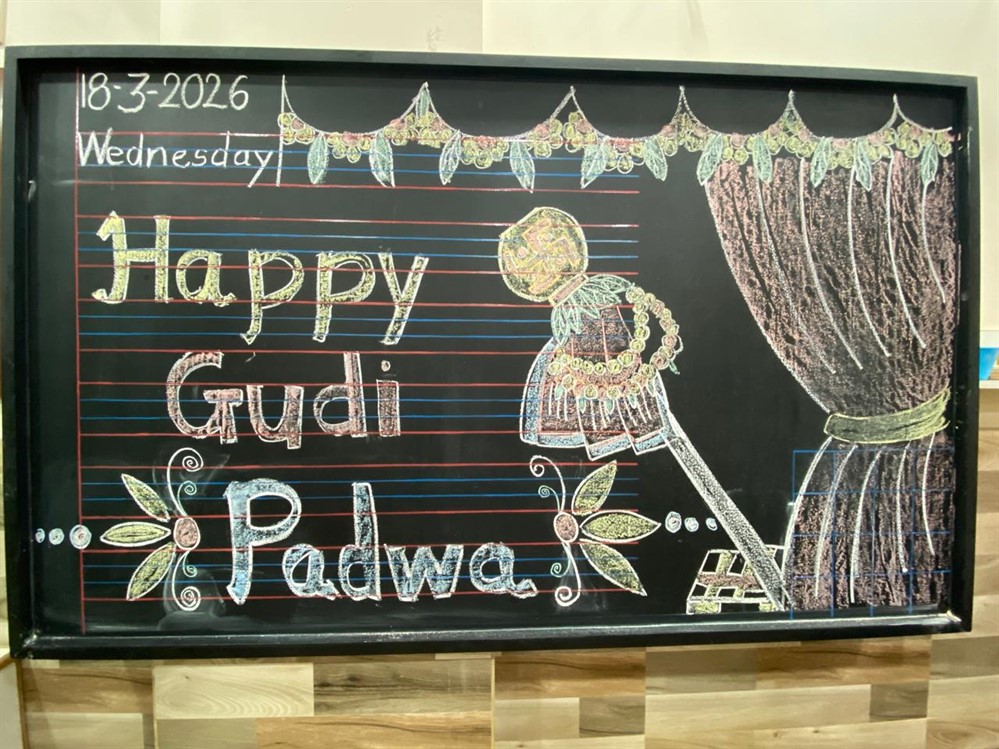 18-3-2026
Wednesday
Happy
Gudi
Padwa